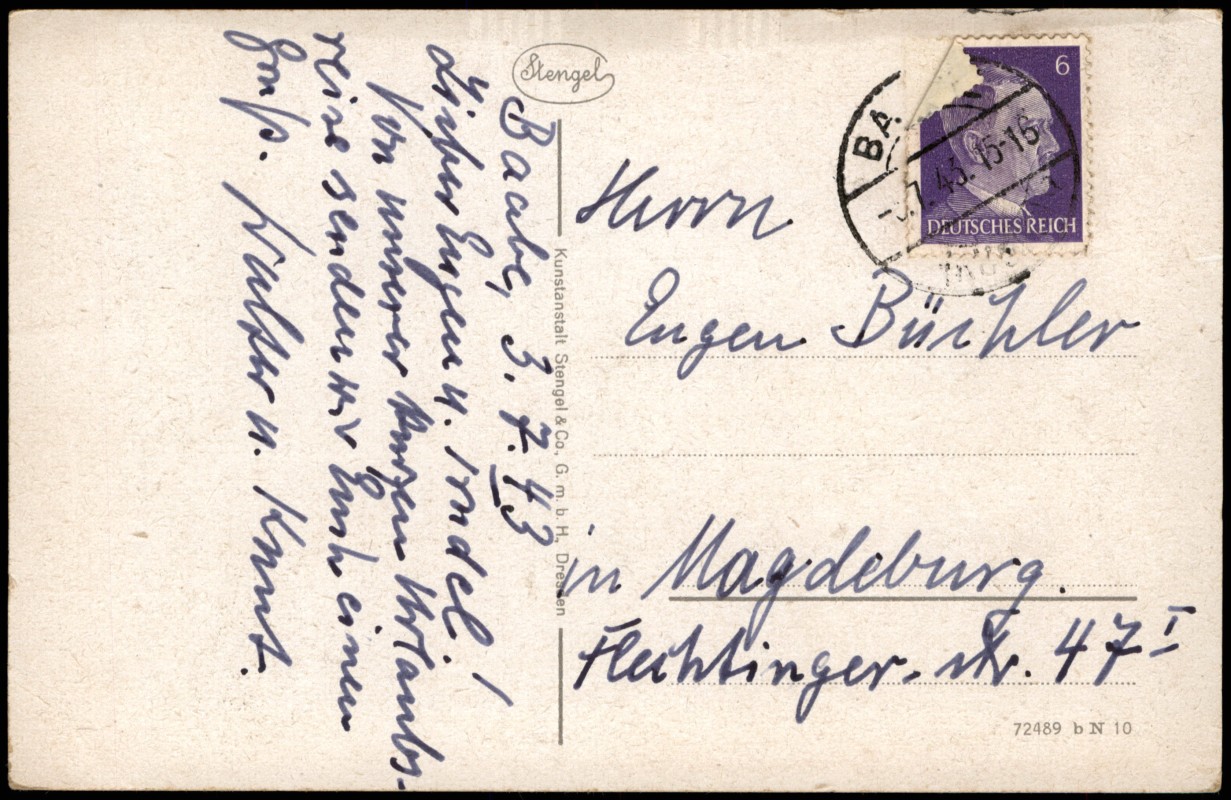 Stengel
Baabe, 3. 7. 43
Lieber Eugen u.
Von unserer kurzen Urlaubs-
reise senden wir Euch einen
Gruß. Walter u.
Kunstanstalt Stengel & Co., G. m. b. H., Dresden
6
DEUTSCHES REICH
BA
7. 43. 15-16
Herrn
Eugen Büchler
in Magdeburg.
Flechtinger-str. 47 I
72489 b N 10